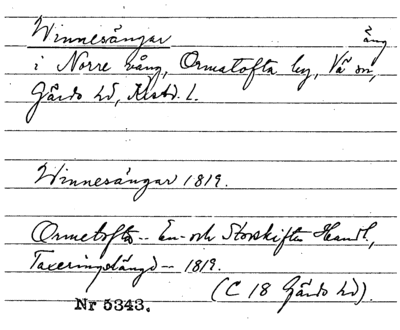 Winnesängar äng
i Norre vång, Ormatofta by, Vä sn,
Gärds hd, Krist. l.
Winnesängar 1819.
Ormetofta -- En- och Storskiftes Handl,
Taxeringslängd -- 1819.
(C 18 Gärds hd).
Nr 5343.